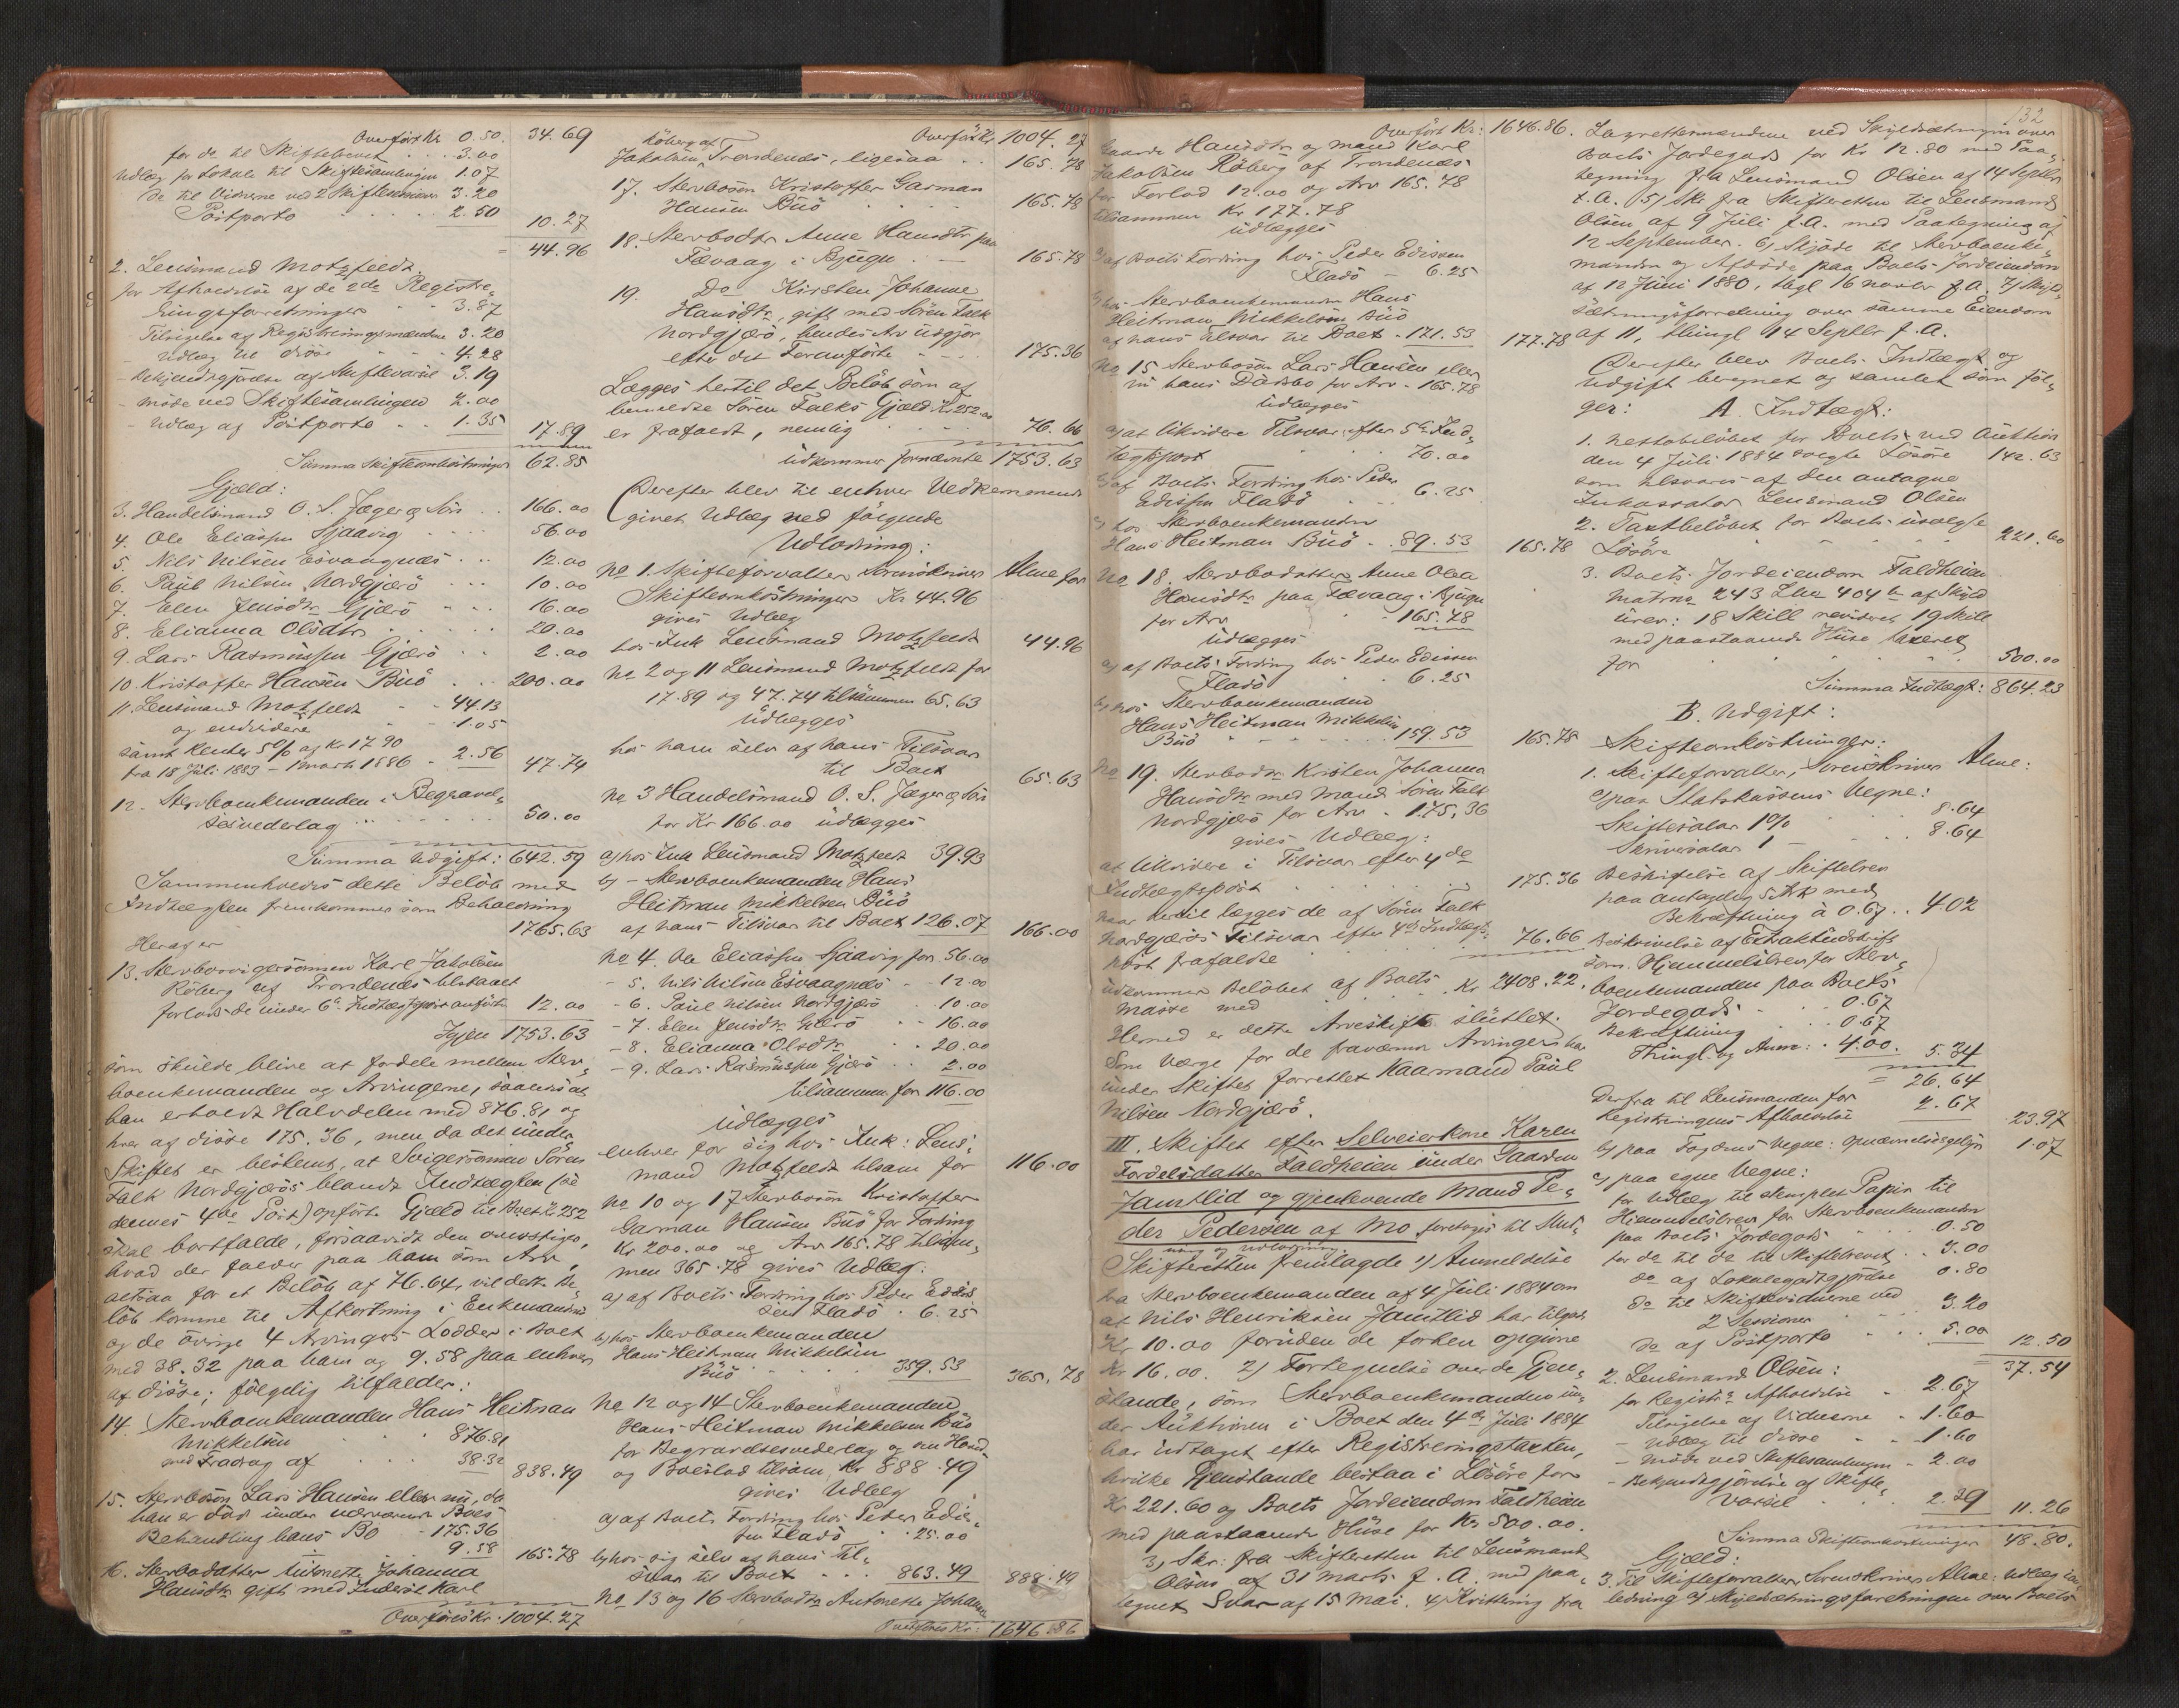 Overført Kr 0.50. 34.69
for do til Skiftebrevet . . 3.00
Udlæg for Lokale til Skiftesamlingen 1.07
Do til Vidnerne ved 2 Skiftesessioner 3.20
Postporto . . . . 2.50 10.27
= 44.96
2. Lensmand Motzfeldt
for Afholdelse af de 2de Registre-
ringsforretninger . . 3.87
Tilsigelse af Registreringsmændene 3.20
- Udlæg til disse . . 4.28
- Bekjendtgjørelse af Skiftevarsel 3.19
- Møde ved Skiftesamlingen 2.00
- Udlæg af Postporto . . 1.35 17.89
Summa Skifteomkostninger 62.85
Gjæld:
3. Handelsmand O. S. Jæger og Søn . . 166.00
4. Ole Eliassen Sjaavig . . . . 56.00
5. Nils Nilsen Esvaagnæs . . . 12.00
6. Paul Nilsen Nordgjærø . . . 10.00
7. Elen Jensdtr Gjærø . . . 16.00
8. Elianna Olsdtr . . . . . 20.00
9. Lars Rasmussen Gjærø . . 2.00
10. Kristoffer Hansen Buø . . . 200.00
11. Lensmand Motzfeldt . . 44.13
og endvidere . . . 1.05
samt Renter 5% af Kr 17.90
fra 18 Juli 1883 - 1 Marts 1886 - 2.56 47.74
12. Stervboenkemanden i Begravel-
sesvederlag . . . . . . 50.00
Summa Udgift: 642.59
Sammenholdes dette Beløb med
Indtægten fremkommer som Beholdning
1765.63
Heraf er
13. Stervbosvigersønnen Karl Jakobsen
Røberg af Trondenæs tilstaaet
Forlods de under 6te Indtægtspost anførte 12.00
Igjen 1753.63
som skulde blive at fordele mellem Sterv-
boenkemanden og Arvingerne, saaledes at
han erholdt Halvdelen med 876.81 og
hver af disse 175.36, men da det under
Skiftet er bestemt, at Svigersønnen Søren
Falk Nordgjærøs blandt Indtægten (se
dennes 4de Post) opførte Gjæld til Boet Kr 252
skal bortfalde, forsaavidt den overstiger,
hvad der falder paa ham som Arv,
altsaa for et Beløb af 76.64, vil dette Be-
løb komme til Afkortning i Enkemandens
og de øvrige 4 Arvingers Lodder i Boet
med 38.32 paa ham og 9.58 paa enhver
af disse; følgelig tilfalder:
14. Stervboenkemanden Hans Heitman
Mikkelsen . . . 876.81
med Fradrag af . . . 38.32 838.49
15. Stervbosøn Lars Hansen eller nu, da
han er død under nærværende Boes
Behandling hans Bo - 175.36
9.58 165.78
16. Stervbodatter Antonette Johanna
Hansdtr gift med Inderst Karl
Overføres Kr. 1004.27
Overført Kr 1004.27
Røberg af
Jakobsen, Trondenæs, ligesaa . . 165.78
17. Stervbosøn Kristoffer Garman
Hansen Buø . . . . 165.78
18. Stervbodtr Anne Hansdtr paa
Fævaag i Bjugn . - 165.78
19. Do Kirsten Johanne
Hansdtr, gift med Søren Falk
Nordgjærø, hendes Arv udgjør
efter det Foranførte . - . . 175.36
Lægges hertil det Beløb som af
bemeldte Søren Falks Gjæld Kr 252.00
er frafaldt, nemlig . . . 76.66
udkommer fornævnte 1753.63
Derefter blev til enhver Vedkommende
givet Udlæg ved følgende
Udlodning:
No 1. Skifteforvalter Sorenskriver Alme for
Skifteomkostninger Kr 44.96
gives Udlæg
hos Ink Lensmand Motzfeldt 44.96
No 2 og 11 Lensmand Motzfeldt for
17.89 og 47.74 tilsammen 65.63
udlægges
hos ham selv af hans Tilsvar
til Boet 65.63
No 3 Handelsmand O. S. Jæger og Søn
for Kr 166.00 udlægges
a) hos Ink Lensmand Motzfeldt 39.93
b) - Stervboenkemanden Hans
Heitman Mikkelsen Buø
af hans Tilsvar til Boet 126.07 166.00
No 4. Ole Eliassen Sjaavig for 56.00
- 5. Nils Nilsen Esvaagnæs - 12.00
- 6. Paul Nilsen Nordgjærø - 10.00
- 7. Elen Jensdtr Gjærø . . 16.00
- 8. Elianna Olsdtr . . 20.00
- 9. Lars Rasmussen Gjærø . . 2.00
tilsammen for 116.00
udlægges
enhver for sig hos Ink: Lens-
mand Motzfeldt tilsam for 116.00
No 10 og 17 Stervbosøn Kristoffer
Garman Hansen Buø for Fordring
Kr 200.00 og Arv 165.78 tilsam-
men 365.78 gives Udlæg:
a) af Boets Fordring hos Peder Edis-
sen Fladø . 6.25
b) hos Stervboenkemanden
Hans Heitman Mikkelsen
Buø . . . 359.53 365.78
No 12 og 14 Stervboenkemanden
Hans Heitman Mikkelsen Buø
for Begravelsesvederlag og sin Hoved
og Boeslod tilsam Kr 888.49
gives Udlæg
a) af Boets Fordring hos Peder Edis-
sen Fladø . . 25.00
b) hos sig selv af hans Til-
svar til Boet . . . 863.49 888.49
No 13 og 16 Stervbodtr Antonette Johanne
Overføres Kr: 1646.86
132
Overført Kr: 1646.86.
Hansdtr og Mand Karl
Jakobsen Røberg af Trondenæs
for Forlod 12.00 og Arv 165.78
tilsammen Kr 177.78
udlægges
a) af Boets Fordring hos Peder Edissen
Fladø - 6.25
b) hos Stervboenkemanden Hans
Heitman Mikkelsen Buø
af hans Tilsvar til Boet - 171.53 177.78
No 15 Stervbosøn Lars Hansen eller
nu hans Dødsbo for Arv - 165.78
udlægges
a) at likvidere Tilsvar efter 5te Ind-
tægtspost . . 70.00
b) af Boets Fordring hos Peder
Edissen Fladø . . 6.25
c) hos Stervboenkemanden
Hans Heitman Buø . . 89.53 165.78
No 18. Stervbodatter Anne Olea
Hansdtr paa Fævaag i Bjugn
for Arv . . 165.78
udlægges
a) af Boets Fordring hos Peder Edissen
Fladø . . 6.25
b) hos Stervboenkemanden
Hans Heitman Mikkelsen
Buø - - - - 159.53 165.78
No 19. Stervbodtr Kirsten Johanna
Hansdtr med Mand Søren Falk
Nordgjærø for Arv . 175.36
gives Udlæg:
at likvidere i Tilsvar efter 4de
Indtægtspost . . . . . 175.36
naar hertil lægges de af Søren Falk
Nordgjærøs Tilsvar efter 4de Indtægts-
post frafaldte . . . 76.66
udkommer Beløbet af Boets
Masse med . . . Kr 2408.22.
Hermed er dette Arveskifte sluttet.
Som Værge for de fraværende Arvinger har
under Skiftet forrettet Kaarmand Paul
Nilsen Nordgjærø.
III. Skiftet efter Selveierkone Karen
Tordelsdatter Faldheien under Gaarden
Jamtlid og gjenlevende Mand Pe-
der Pedersen af Mo foretoges til Slut-
ning og Udlodning.
Skifteretten fremlagde 1) Anmeldelse
fra Stervboenkemanden af 4 Juli 1884 om
at Nils Henriksen Jamtlid har tilgode
Kr 10.00 foruden de forhen opgivne
Kr 16.00. 2) Fortegnelse over de Gjen-
stande, som Stervboenkemanden un-
der Auktionen i Boet den 4de Juli 1884
har udtaget efter Registreringstaxten,
hvilke Gjenstande bestaa i Løsøre for
Kr 221.60 og Boets Jordeiendom Faldheien
med paastaaende Huse for Kr 500.00.
3) Skr: fra Skifteretten til Lensmand
Olsen af 31 Marts f. A. med paa-
tegnet Svar af 15 Mai. 4) Kvittering fra
Lagrettemændene ved Skyldsætningen over
Boets Jordegods for Kr 12.80 med Paa-
tegning fra Lensmand Olsen af 14 Septbr
f.A. 5) Skr fra Skifteretten til Lensmand
Olsen af 9 Juli f.A. med Paategning af
12 September. 6) Skjøde til Stervboenke-
manden og Afdøde paa Boets Jordeiendom
af 12 Juni 1880, thgl 16 Novbr f.A. 7) Skyld-
sætningsforretning over samme Eiendom
af 11, thingl 14 Septbr f.A.
Derefter blev Boets Indtægt og
Udgift beregnet og samlet som føl-
ger:
A. Indtægt:
1. Nettobeløbet for Boets ved Auktion
den 4 Juli 1884 solgte Løsøre 142.63
som tilsvares af den antagne
Inkassator Lensmand Olsen
2. Taxtbeløbet for Boets usolgte
Løsøre . . . . 221.60
3. Boets Jordeiendom Faldheien
Matrno 243 Lno 404 b af Skyld
urev: 18 Skill revideret 19 Skill
med paastaaende Huse taxeret
for . . . . . 500.00
Summa Indtægt: 864.23
B. Udgift:
Skifteomkostninger:
1. Skifteforvalter, Sorenskriver Alme:
a) paa Statskassens Vegne:
Skiftesalar 1% . . 8.64
Skriversalar 1 - . . . 8.64
Beskrivelse af Skiftebrev
paa antagelig 5 Ark med
Bekræftning à 0.67 . . 4.02
Beskrivelse af Extraktudskrift
som Hjemmelsbrev for Sterv-
boenkemanden paa Boets
Jordegods . . 0.67
Bekræftning . . . 0.67
Thingl. og Anm: . 4.00. 5.34
= 26.64
Derfra til Lensmanden for
Registreringens Afholdelse 2.67 23.97
b) paa Fogdens Vegne: Opnævnelsesgebyr 1.07
c) paa egne Vegne:
for Udlæg til stemplet Papir til
Hjemmelsbrev for Stervboenkemanden
paa Boets Jordegods . . 0.50
for do til do til Skiftebrevet . . 3.00
do af Lokalegodtgjørelse 0.80
do til Skiftevidnerne ved
2 Sessioner . . . 3.20
do af Postporto . . . 5.00 12.50
= 37.54
2. Lensmand Olsen:
for Registrs Afholdelse . 2.67
Tilsigelse af Vidnerne . 1.60
- Udlæg til disse . . 1.60
- Møde ved Skiftesamlingen - 2.00
- Bekjendtgjørelse af Skifte-
varsel . . . 2.39 11.26
Summa Skifteomkostninger 48.80.
Gjæld:
3. Til Skifteforvalter, Sorenskriver Alme: Udlæg i an-
ledning af Skyldsætningsforretningen over Boets